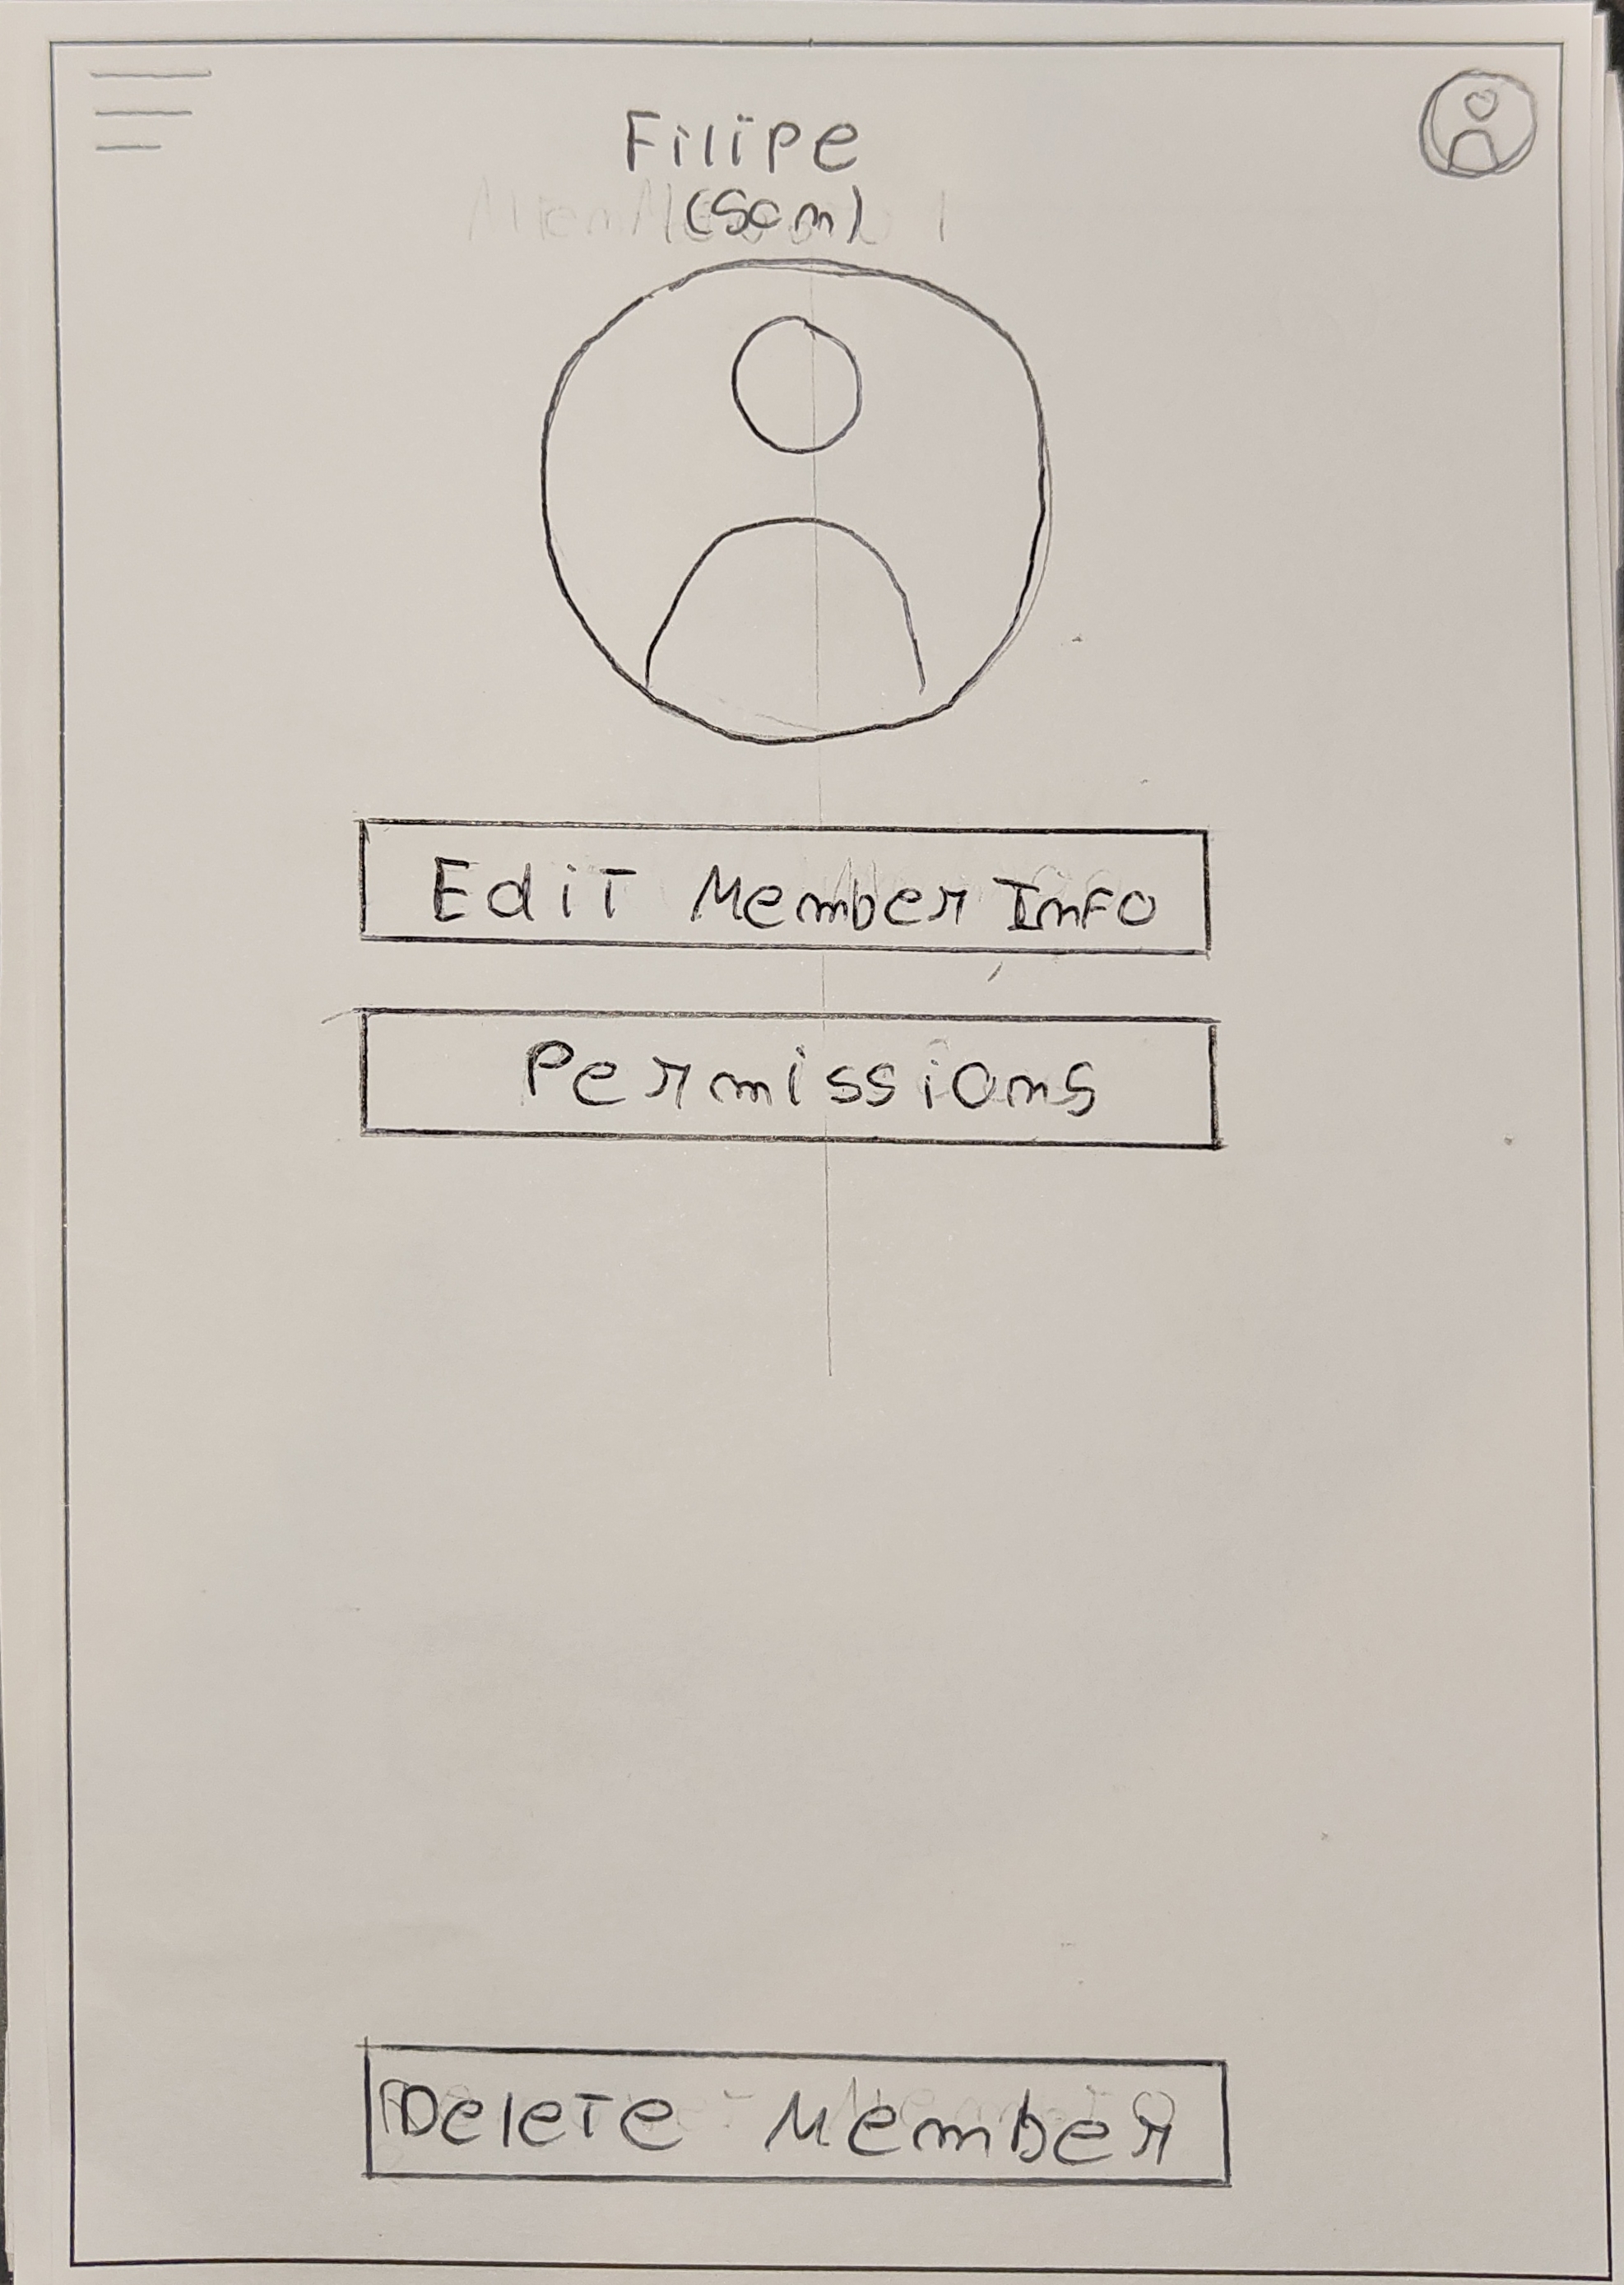 Filipe
(Son)
Edit Member Info
Permissions
Delete Member